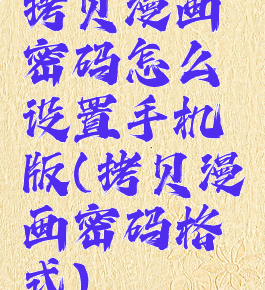 拷贝漫画
密码怎么
设置手机
版(拷贝漫
画密码格
式)